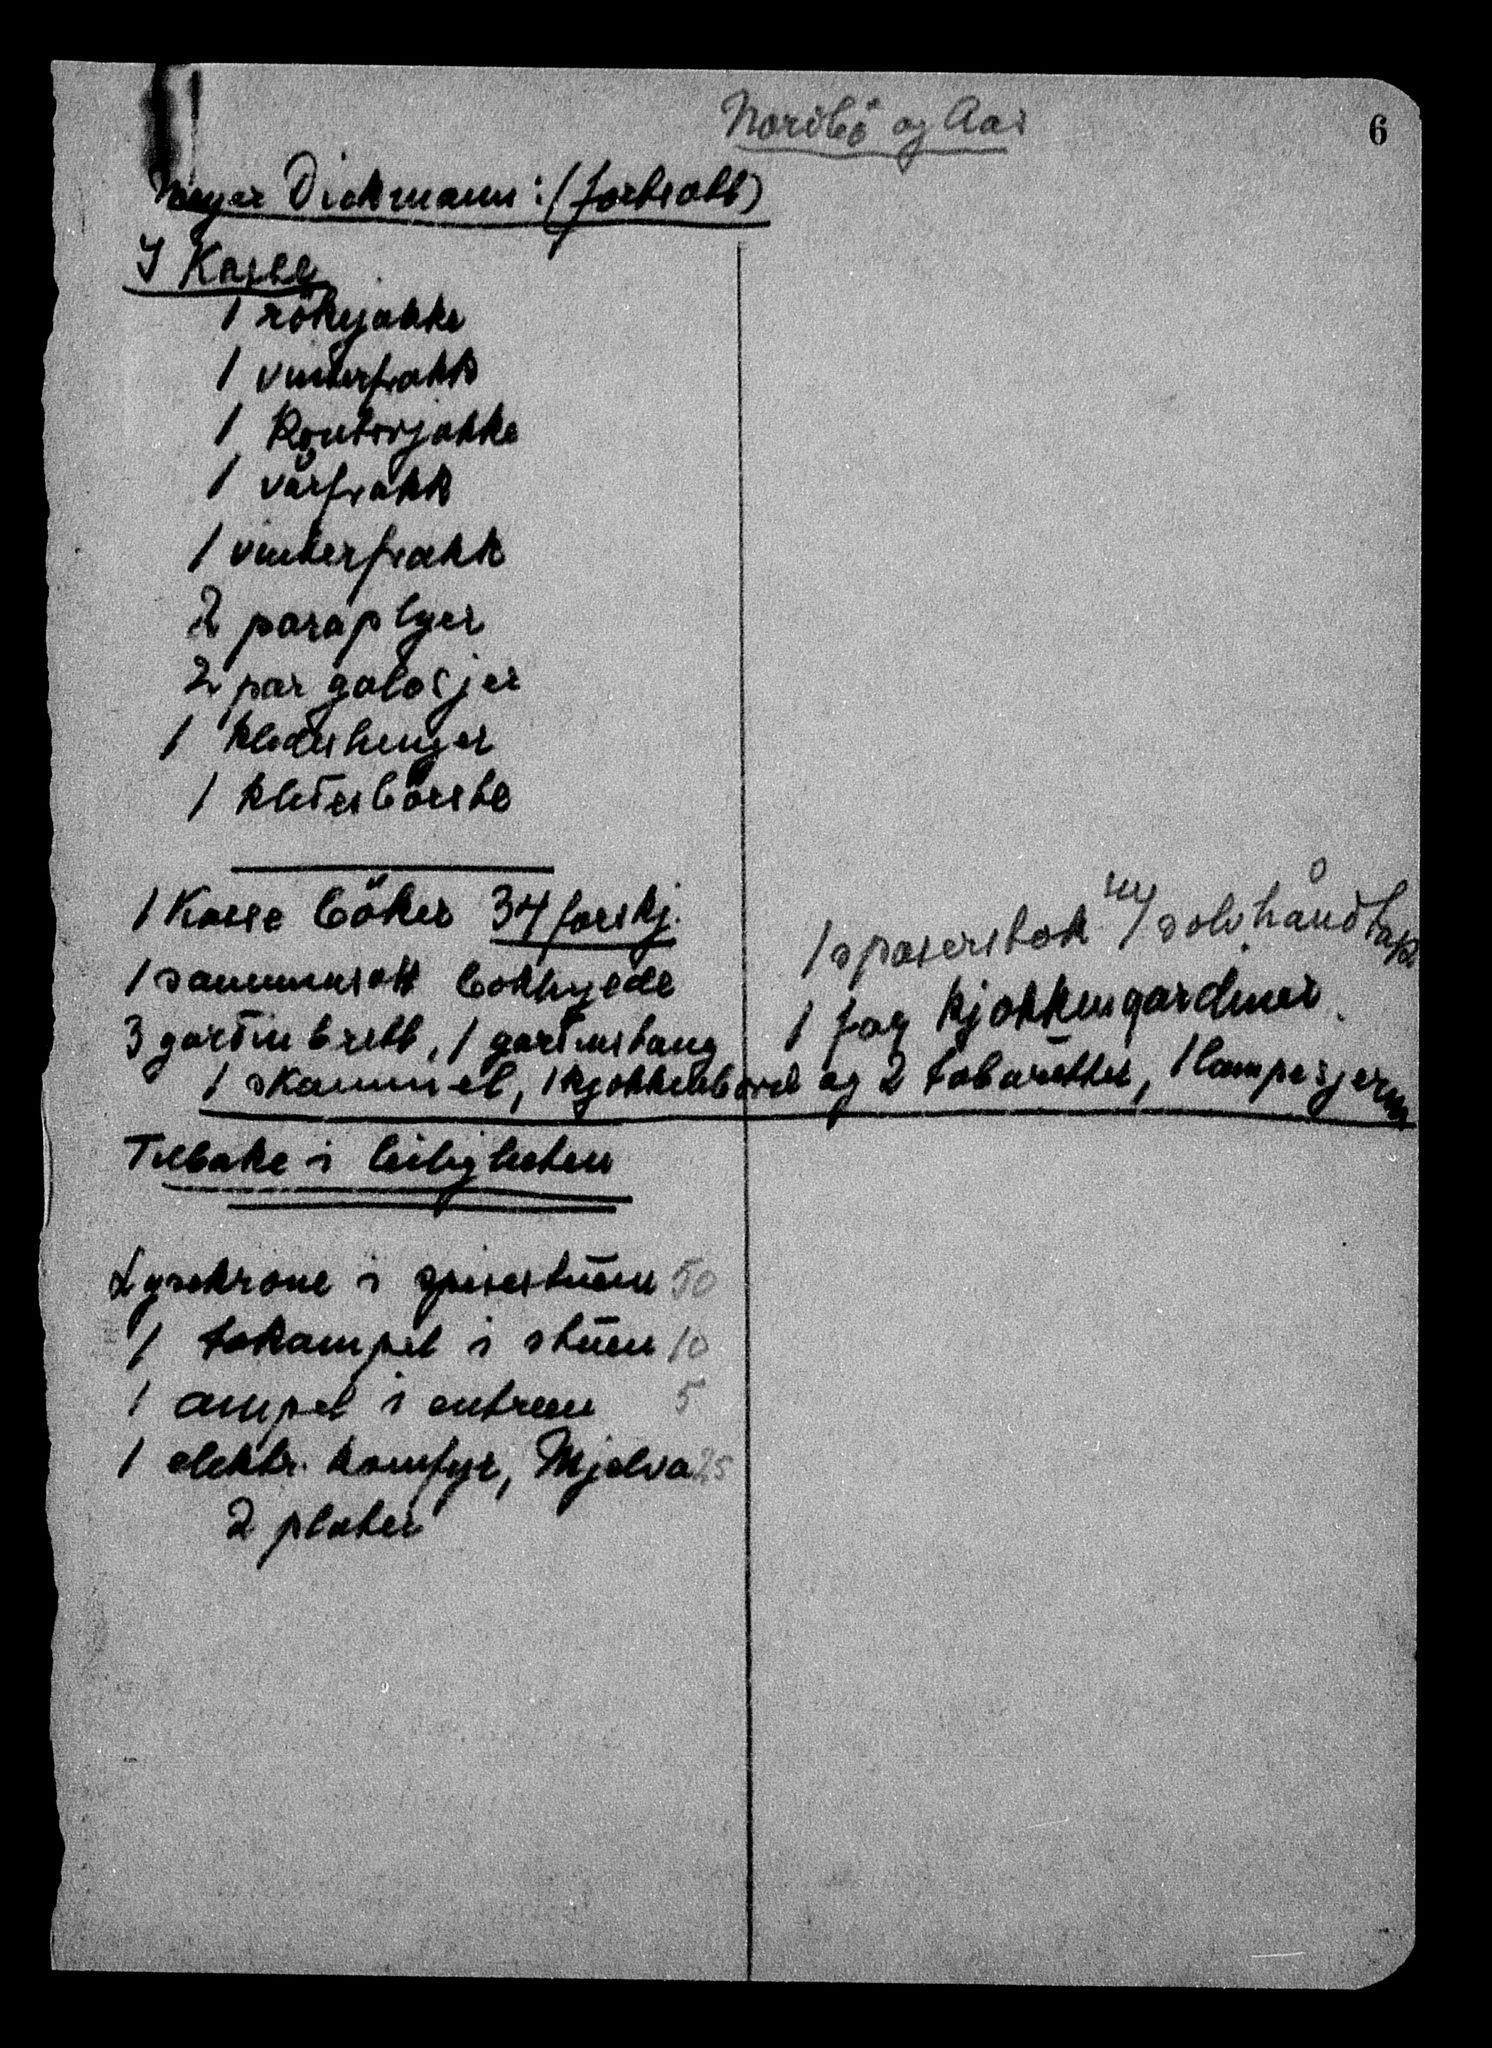 Nordbö og Aas
6
Meyer Dickmann: (fortsatt)
I Kasse
1 rökejakke
1 vinterfrakk
1 Kontorjakke
1 vårfrakk
1 vinterfrakk
2 paraplyer
2 par galosjer
1 kleshenger
1 klesbörste
1 Kasse böker 34 forskj.
1 sammensatt bokhylde
3 gardinbrett, 1 gardinstang
1 spaserstok m/ sölvhåndtak
1 fag kjøkkengardiner.
1 skammel, 1 kjøkkenbord og 2 taburetter, 1 lampeskjerm
Tilbake i leiligheten
Lysekrone i spisestuen 50
1 takampel i stuen 10
1 ampel i entreen 5
1 elektr. komfyr, Mjølva 25
2 plater